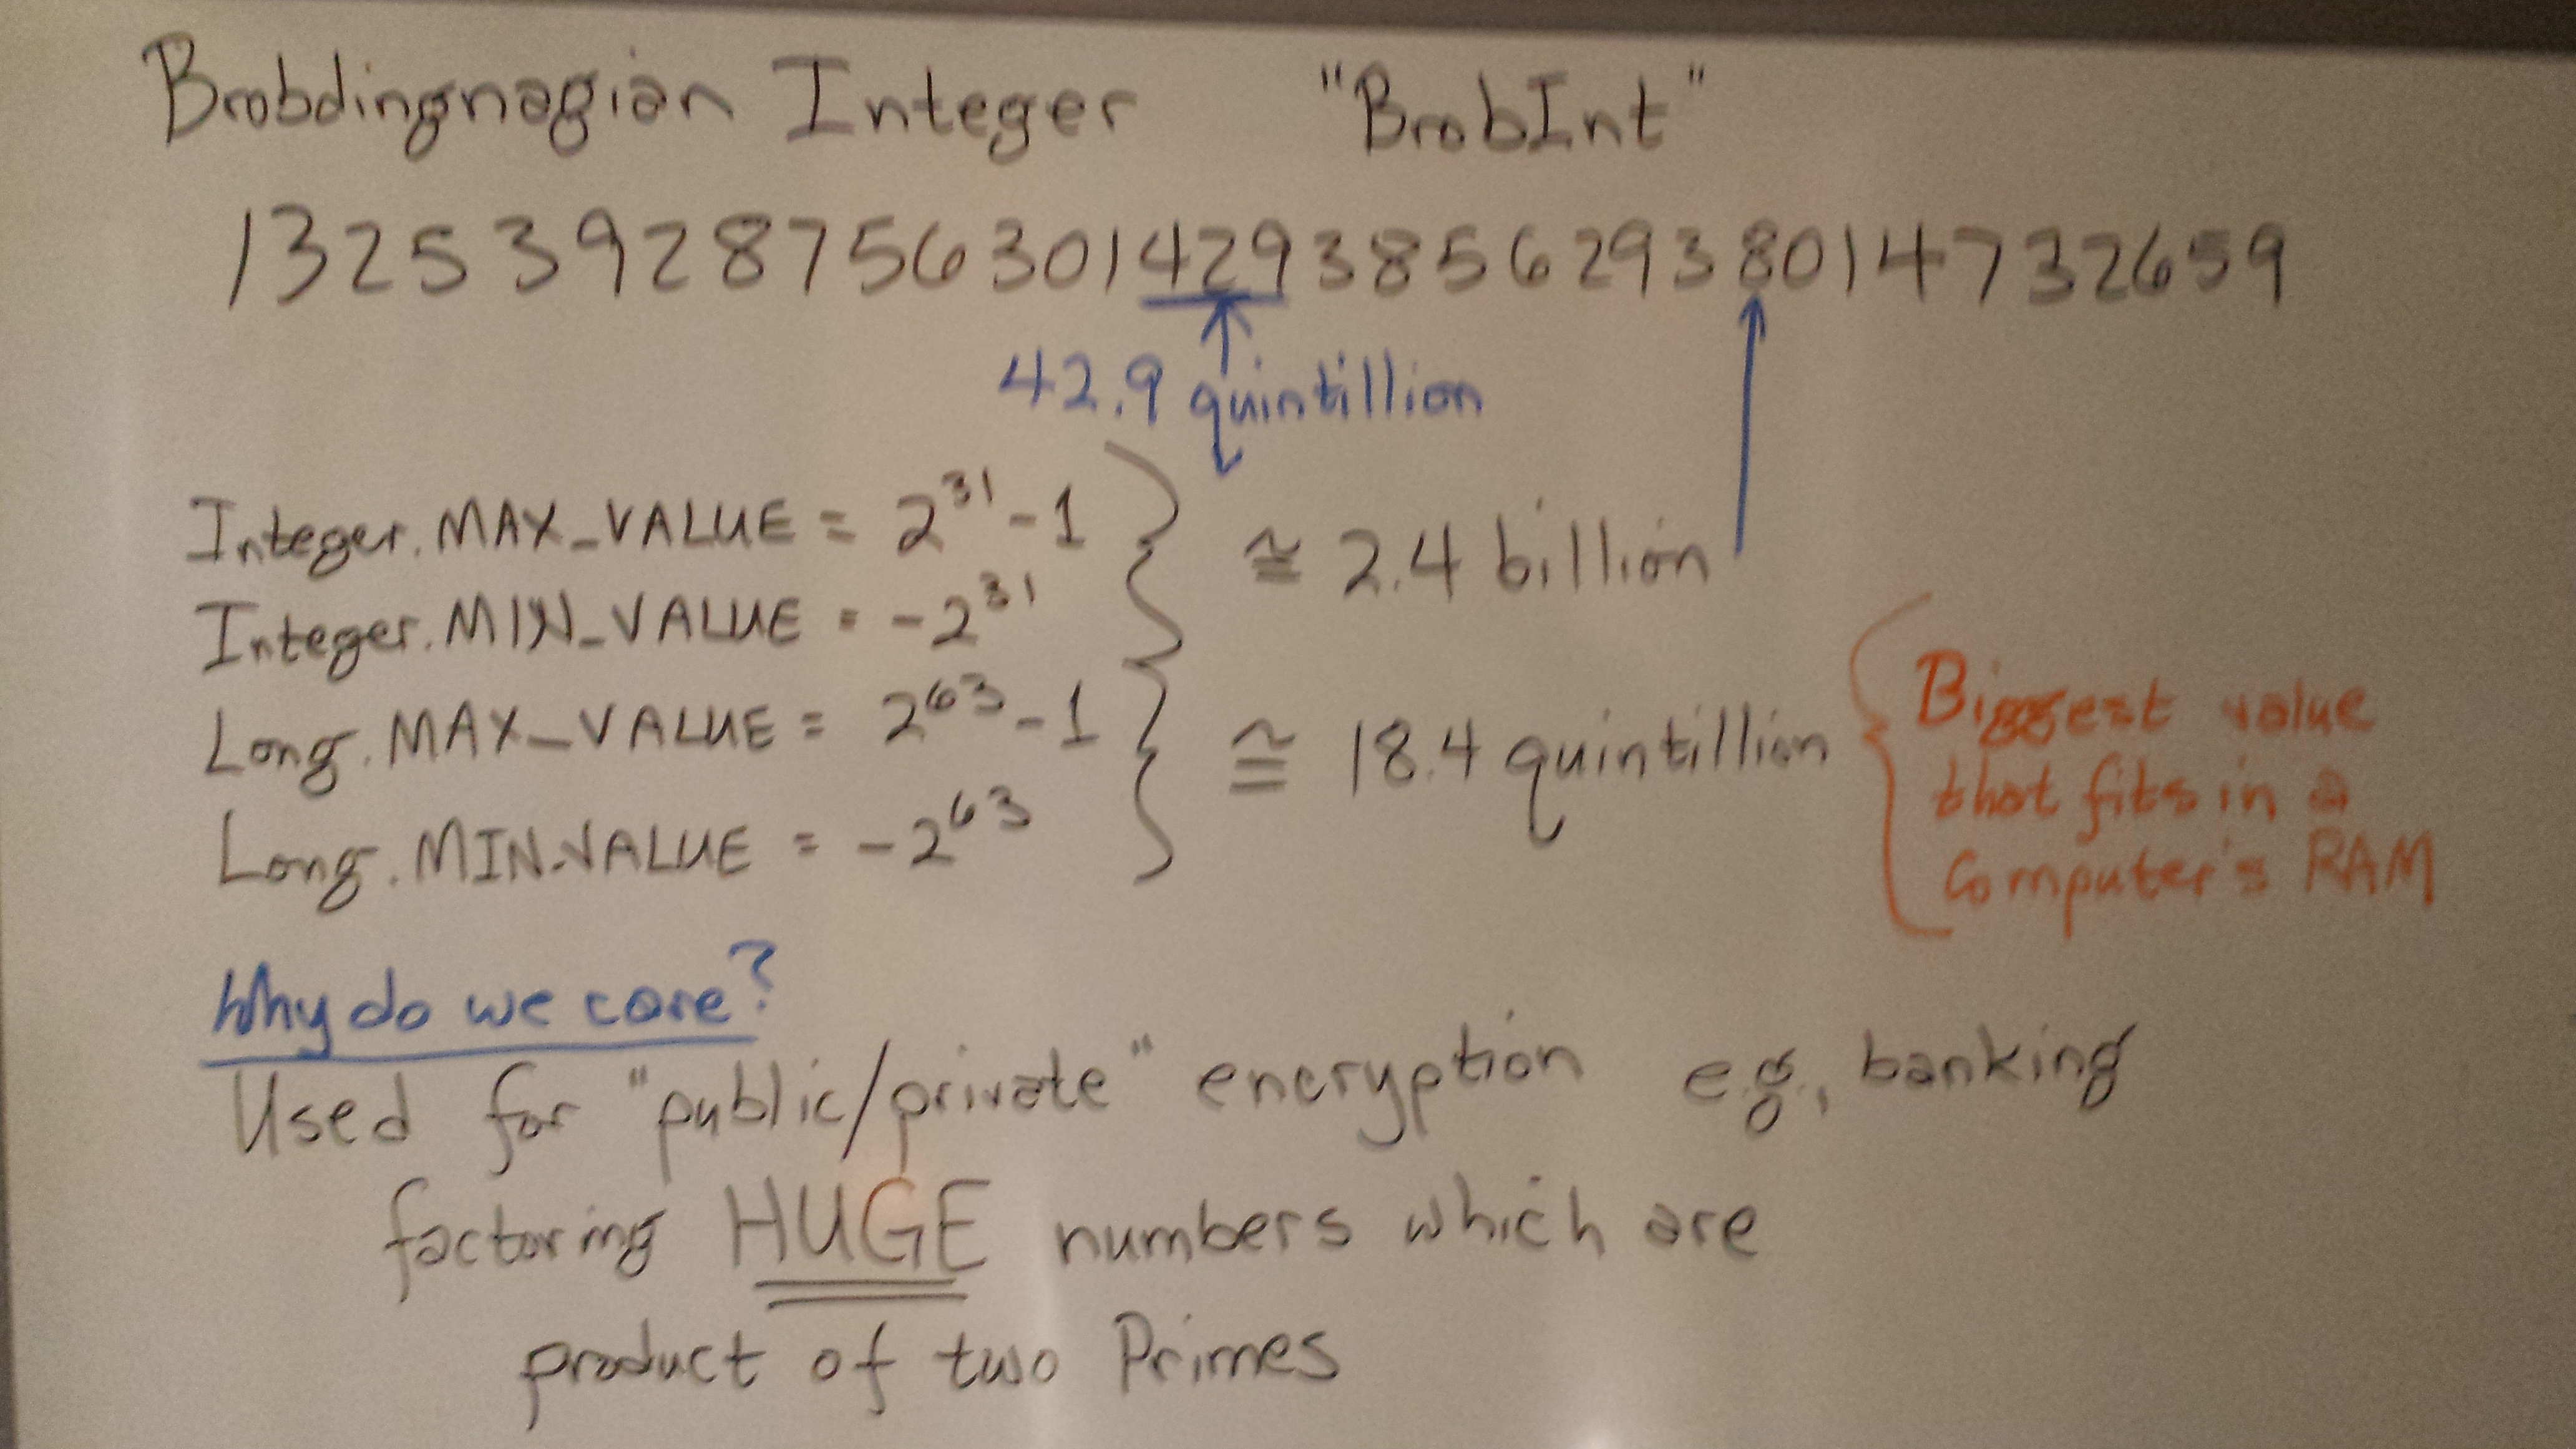 Brobdingnagian Integer "BrobInt"
1325392875630142938562938014732659
42.9 quintillion
Integer.MAX_VALUE = 2³¹-1
≅ 2.4 billion
Integer.MIN_VALUE = -2³¹
Long.MAX_VALUE = 2⁶³-1
≅ 18.4 quintillion
Long.MIN_VALUE = -2⁶³
Biggest value
that fits in a
Computer's RAM
Why do we care?
Used for "public/private" encryption e.g., banking
factoring HUGE numbers which are
product of two Primes